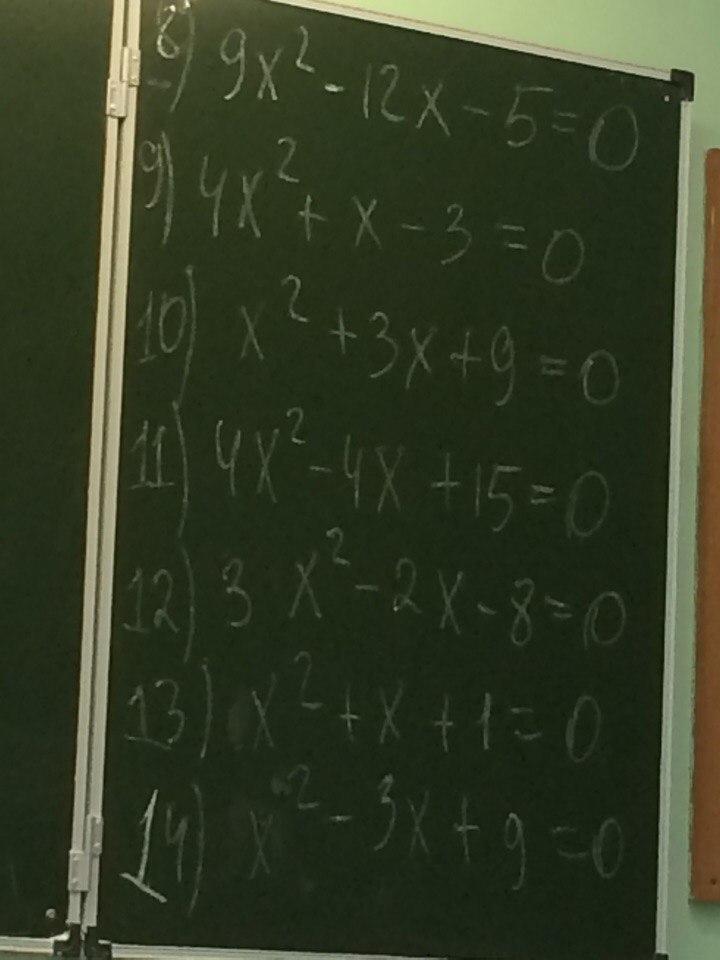 8) 9x² - 12x - 5 = 0
9) 4x² + x - 3 = 0
10) x² + 3x + 9 = 0
11) 4x² - 4x + 15 = 0
12) 3x² - 2x - 8 = 0
13) x² + x + 1 = 0
14) x² - 3x + 9 = 0